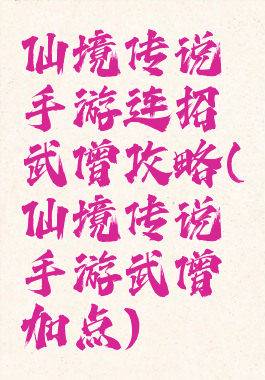 仙境传说
手游连招
武僧攻略(
仙境传说
手游武僧
加点)